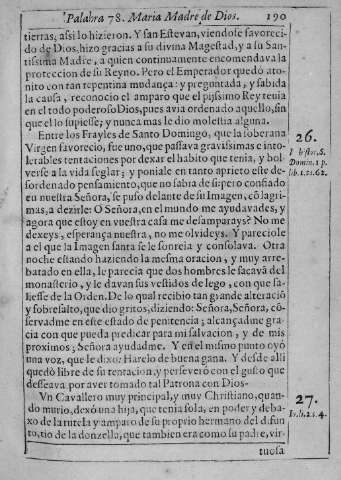 Palabra 78. Maria Madre de Dios. 190
tierras; assi lo hizieron. Y san Estevan, viendose favorecido
de Dios, hizo gracias a su divina Magestad, y a su Santissima
Madre, a quien continuamente encomendava la
proteccion de su Reyno. Pero el Emperador quedò atonito
con tan repentina mudança: y preguntada, y sabida
la causa, reconocio el amparo que el pijssimo Rey tenia
en el todo poderoso Dios, pues avia ordenado aquello, sin
que el lo supiesse; y nunca mas le dio molestia alguna.
Entre los Frayles de Santo Domingo, que la soberana
Virgen favorecio, fue uno, que passava gravissimas e intolerables
tentaciones por dexar el habito que tenia, y bolverse
a la vida seglar; y poniale en tanto aprieto este desordenado
pensamiento, que no sabia de si: pero confiado
en nuestra Señora, se puso delante de su Imagen, cõ lagrimas,
a dezirle: O Señora, en el mundo me ayudavades, y
agora que estoy en vuestra casa me desamparays? No me
dexeys, esperança nuestra, no me olvideys. Y pareciole
a el que la Imagen santa se le sonreia y consolava. Otra
noche estando haziendo la mesma oracion, y muy arrebatado
en ella, le parecia que dos hombres le sacavã del
monasterio, y le davan sus vestidos de lego, con que saliesse
de la Orden. De lo qual recibio tan grande alteraciõ
y sobresalto, que dio gritos, diziendo: Señora, Señora, cõservadme
en este estado de penitencia; alcançadme gracia
con que pueda predicar para mi salvacion, y de mis
proximos; Señora ayudadme. Y en el mismo punto oyò
una voz, que le dixo: Harelo de buena gana. Y desde alli
quedò libre de su tentacion, y perseverò con el gusto que
desseava por aver tomado tal Patrona con Dios.
Vn Cavallero muy principal, y muy Christiano, quando
murio, dexò una hija, que tenia sola, en poder y debaxo
de la tutela y amparo de su proprio hermano del difunto,
tio de la donzella, que tambien era como su padre, virtuosa
26.
Domin. 1 p.
27.